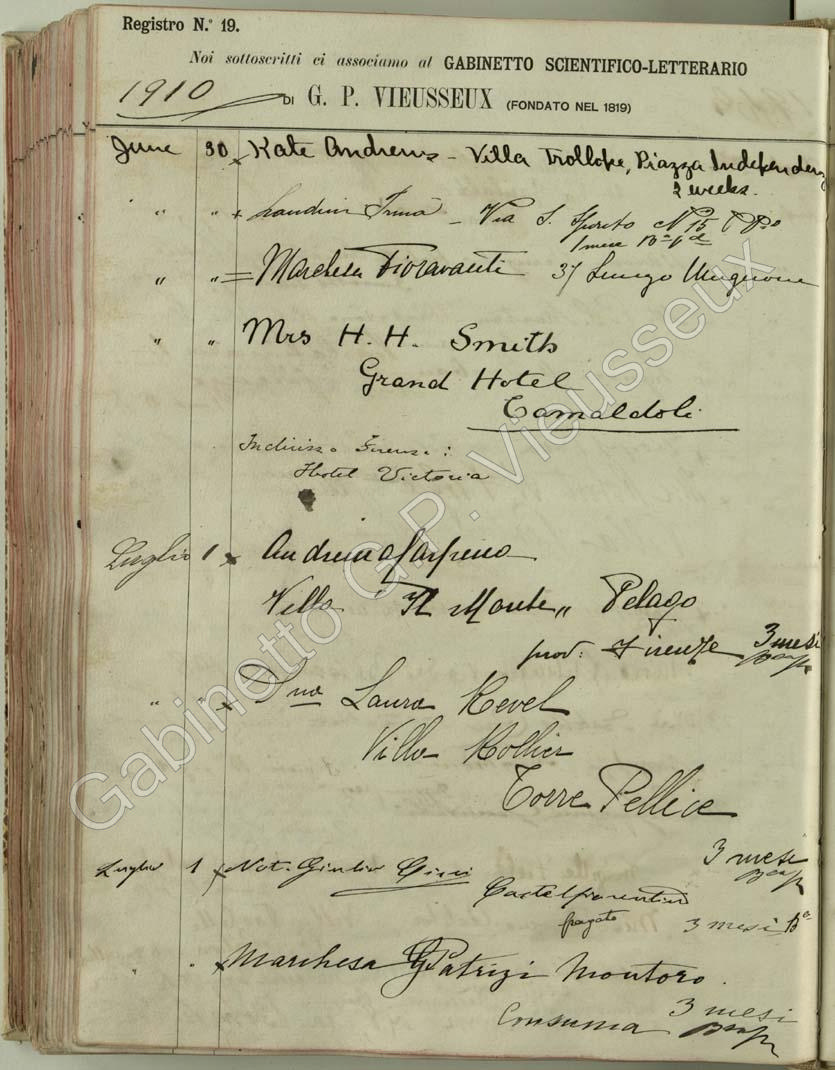 Registro N.° 19.
Noi sottoscritti ci associamo al GABINETTO SCIENTIFICO-LETTERARIO
1910 DI G. P. VIEUSSEUX (FONDATO NEL 1819)
June 30 x Kate Andrews - Villa Trollope, Piazza Independenza
2 weeks.
" " x Landini Irma - Via S. Spirito N° 15
1 mese
" " = Marchesa Fioravanti 37 Lungo Mugnone
" " Mrs H. H. Smith
Grand Hotel
Camaldoli
Indirizzo Firenze:
Hotel Victoria
Luglio 1 x Andreina
Villa Il Monte " Pelago
prov: Firenze 3 mesi
" " x Laura Revel
Villa
Torre Pellice
3 mesi
Luglio 1 x Not. Giulio
Castelfiorentino
pagato 3 mesi
" " x Marchesa Patrizi Montoro.
3 mesi
Consuma
Gabinetto G.P. Vieusseux